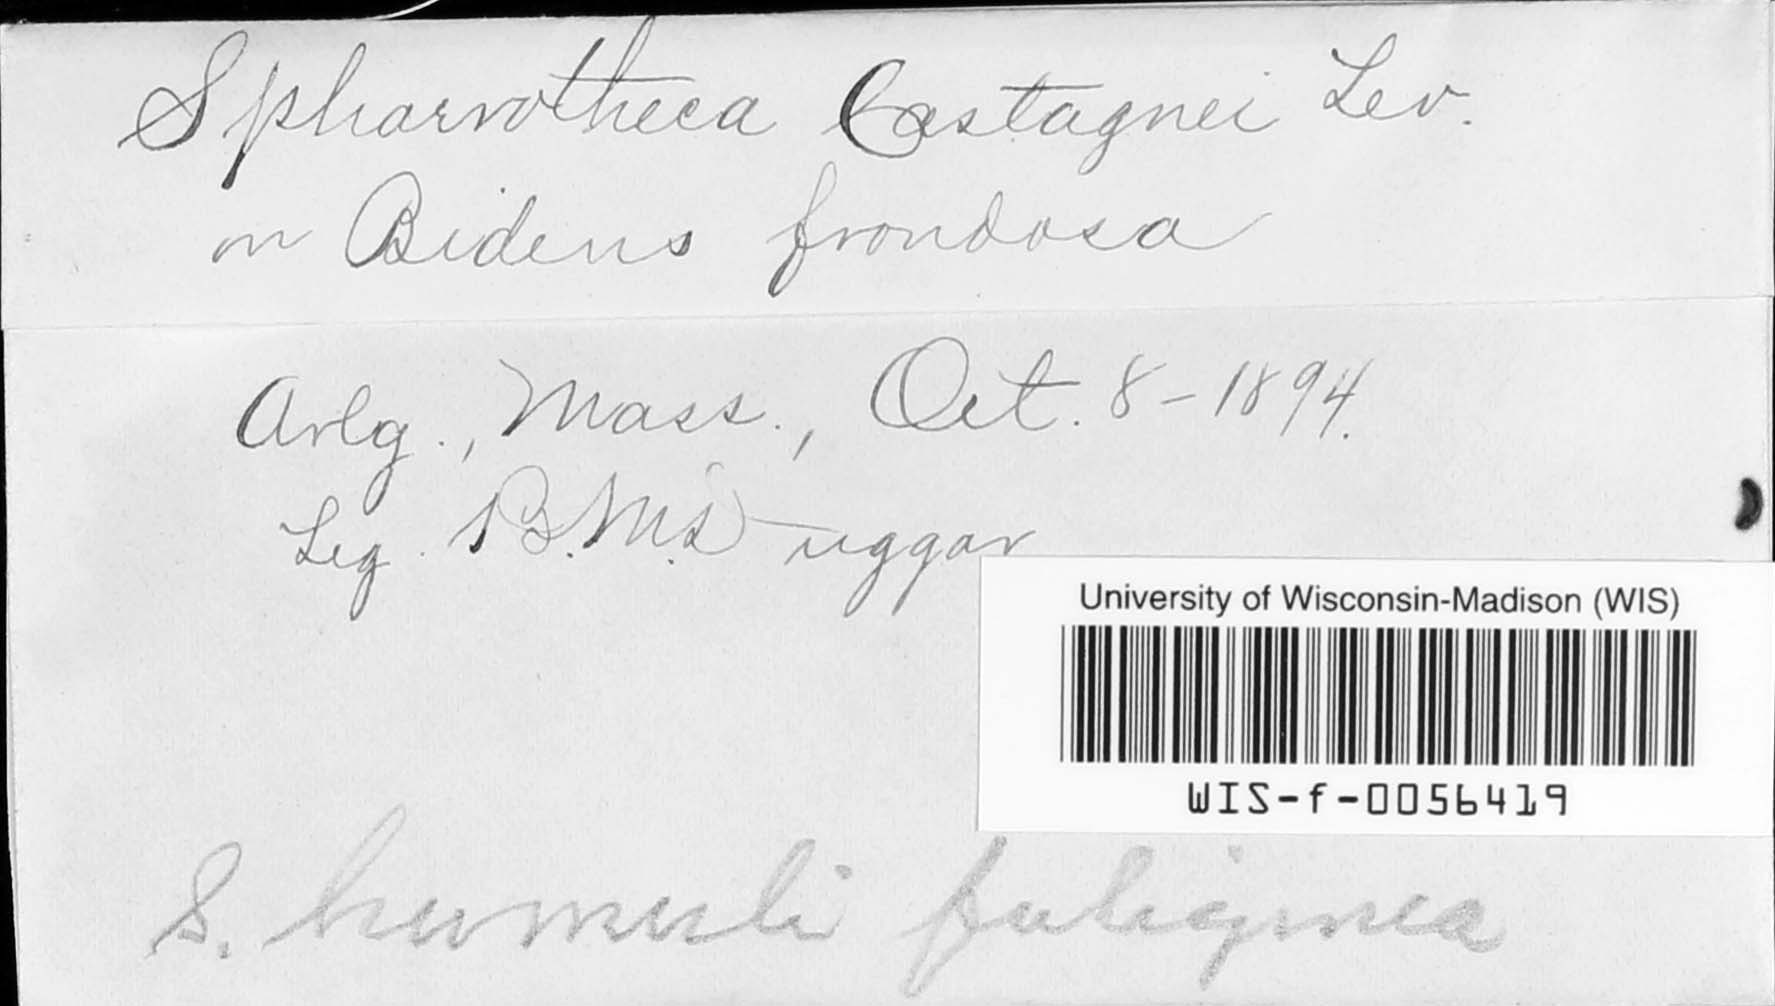 Sphaerotheca Castagnei Lev.
on Bidens frondosa
Arlg., Mass., Oct. 8-1894.
Leg. B.M. Duggar
University of Wisconsin-Madison (WIS)
WIS-f-0056419
S. humuli fuliginea